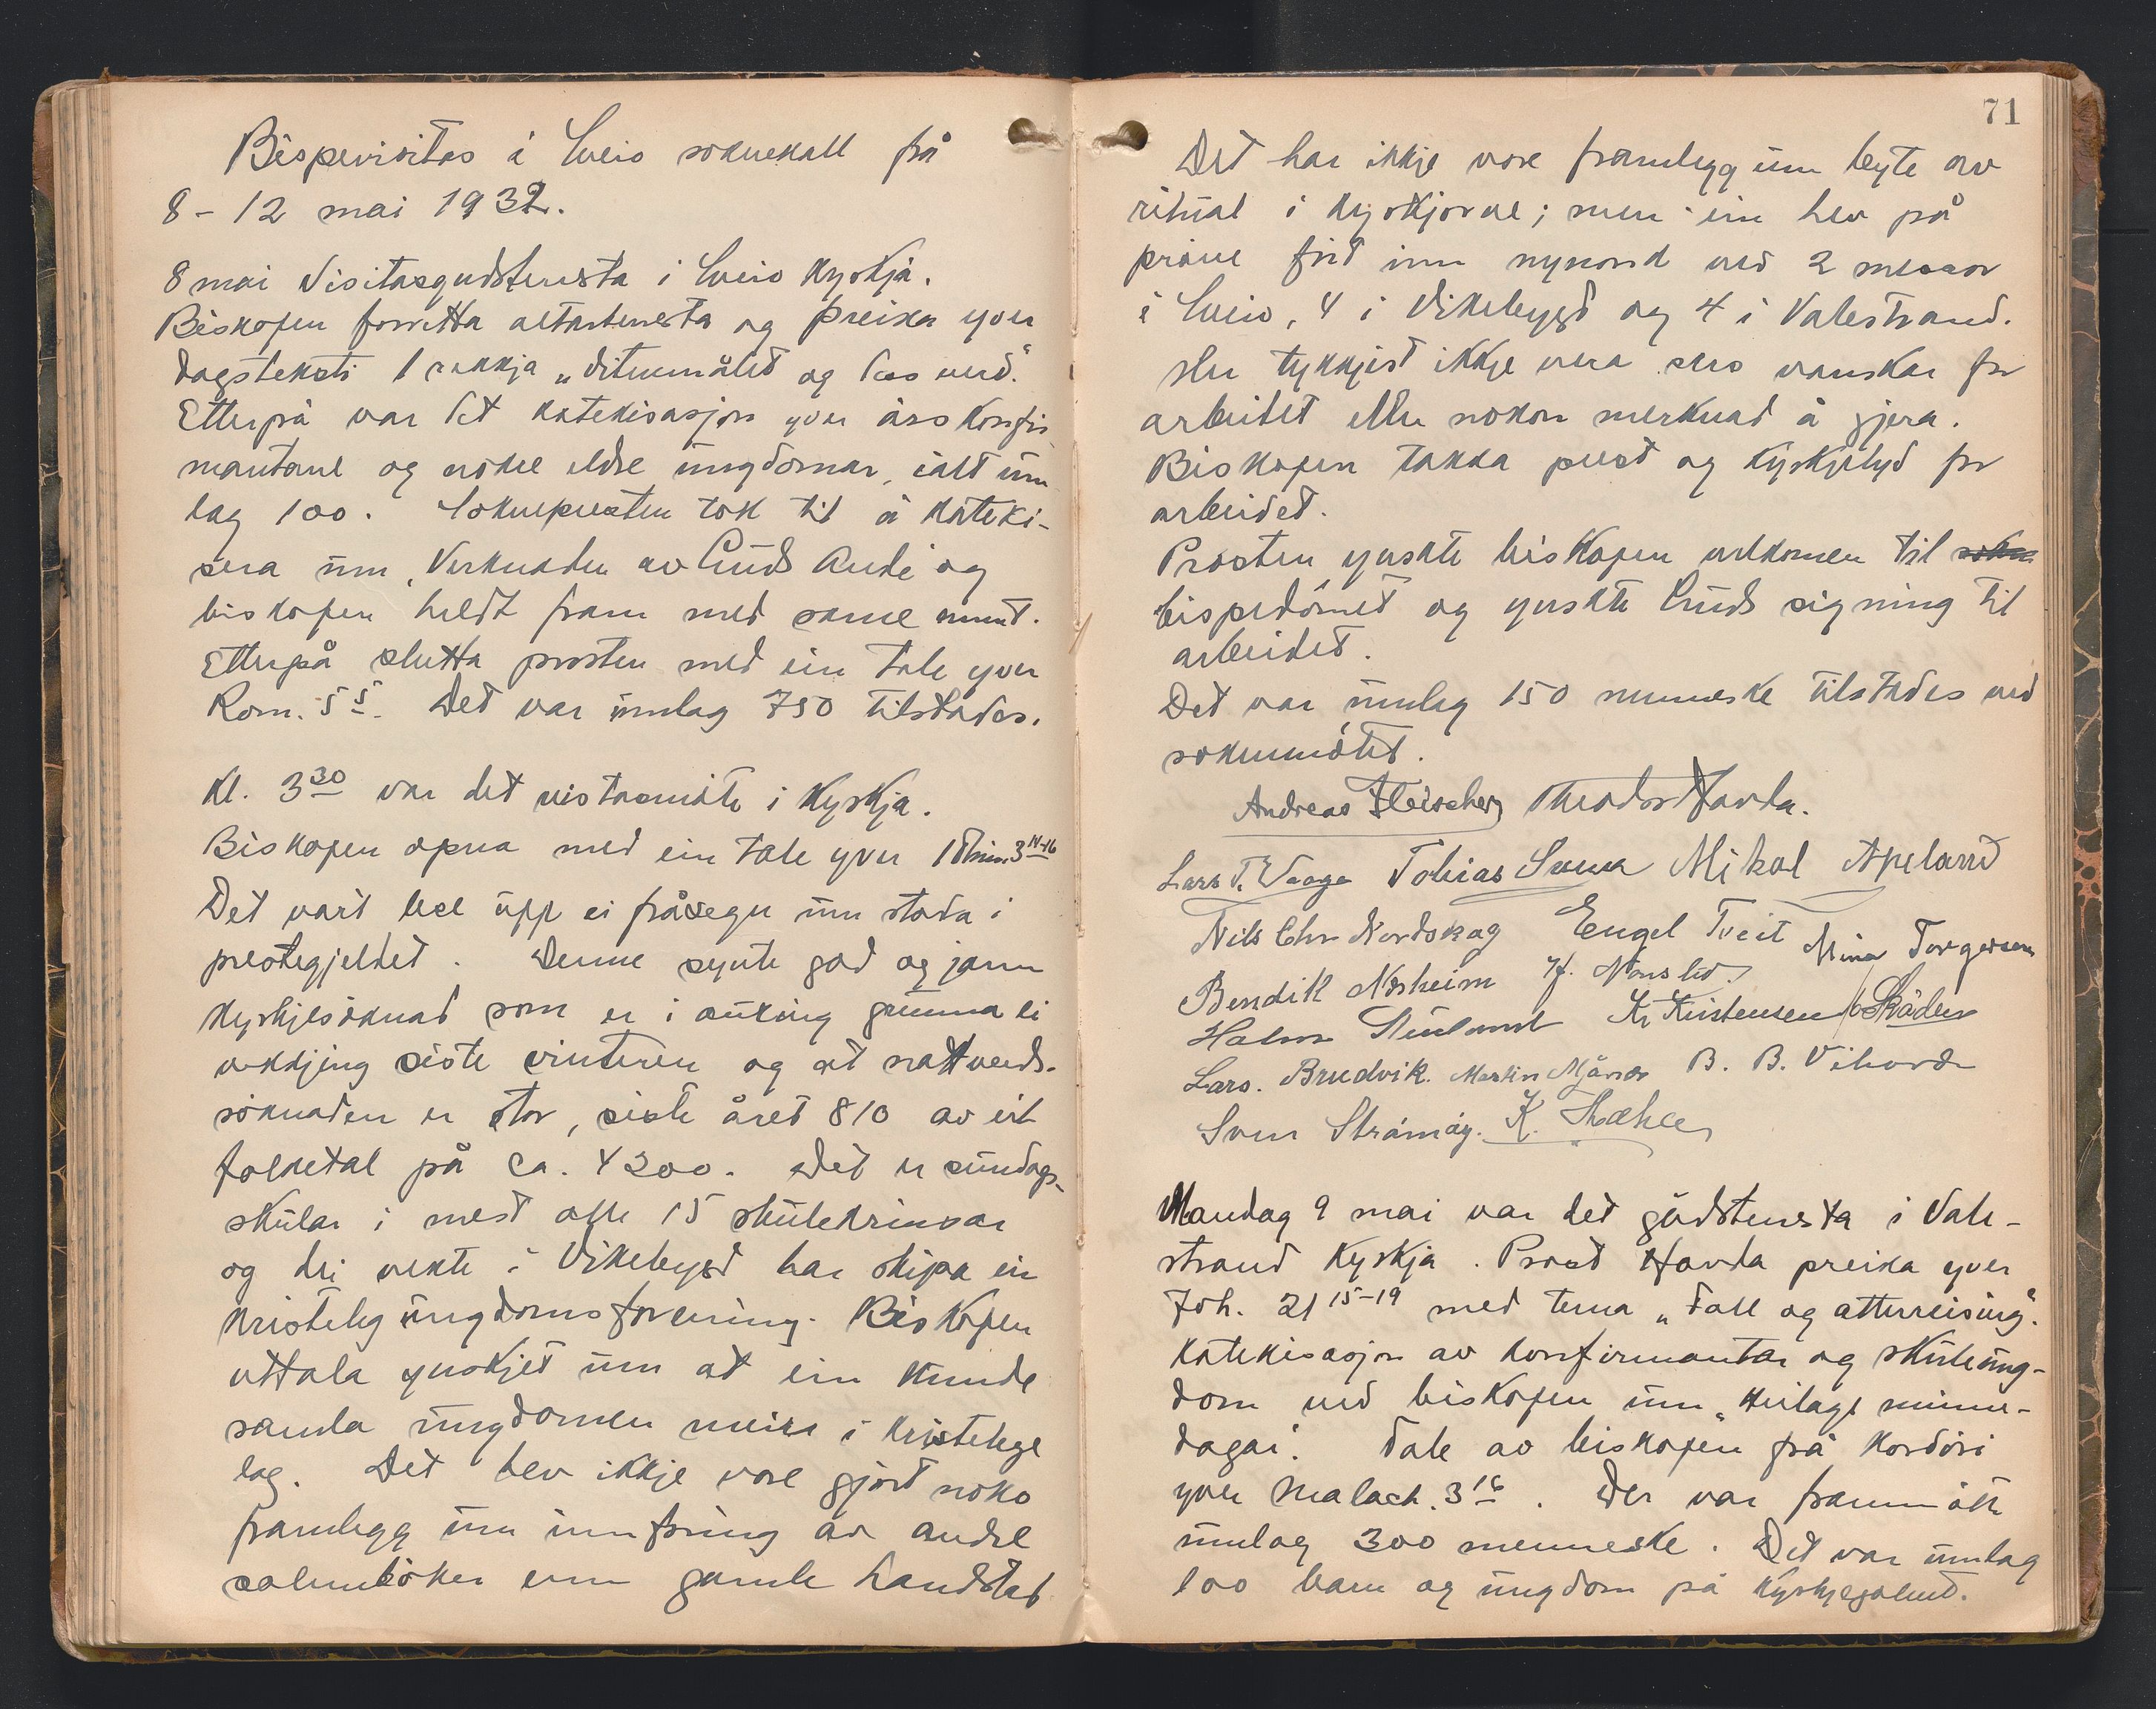 Bispevisitas i Sveio soknekall frå
8 - 12 mai 1932.
8 mai Visitasgudstenesta i Sveio Kyrkja.
Biskopen forretta altartenesta og preika yver
dagsteksti 1 rekkja „Vitnemålet og las verd."
Etterpå var det katekisasjon yver årskonfir
mantane og nokre eldre ungdomar, ialt um
lag 100. Soknepresten tok til å kateki-
sera um „Verknaden av Guds Ande og
biskopen heldt fram med same emnet.
Etterpå slutta prosten med ein tale yver
Rom. 5 5. Det var umlag 750 tilstades.
Kl. 3 30 var det vistasmøte i Kyrkja.
Biskopen opna med ein tale yver 1 Tim. 3 14-16
Det vart lese upp ei fråsegn um stoda i
prestegjeldet. Denne synte god og jamn
kyrkjesøknad som er i auking grunna ei
vekkjing siste vinteren og at nattverds-
søknaden er stor, siste året 810 av eit
folketal på ca. 4200. Det er sundags-
skular i mest alle 15 skulekrinsar
og dei vekte i Vikebygd har skipa ein
kristeleg ungdomsforening. Biskopen
uttala ynskjet um at ein kunde
samla ungdomen meire i kristelege
lag. Det hev ikkje vore gjort noko
framlegg um innføring av andre
salmebøker enn gamle Landstad
71
Det har ikkje vore framlegg um byte av
ritual i kyrkjorne; men ein hev på
prøve ført inn nynorsk ved 2 messor
i Sveio, 4 i Vikebygd og 4 i Valestrand.
Her tykkjest ikkje vera sers vanskar for
arbeidet eller nokon merknad å gjera.
Biskopen takka prest og kyrkjelyd for
arbeidet.
Prosten ynskte biskopen velkomen til sokn
bispedømet og ynskte Guds signing til
arbeidet.
Det var umlag 150 menneske tilstades ved
soknemøtet.
Andreas Fleischer Theodor Havda.
Lars T. Vaage Tobias Svena Mikal Apeland
Nils Chr Nordskog Engel Tveit Mina Torgersen
Bendik Nesheim H. Nonslid
Holm Stuland Kr Kristensen Skåden
Lars. Brudvik. Martin B. B. Vihovde
Sven Strømøy. K. Stæhle
Mandag 9 mai var det gudstenesta i Vale-
strand Kyrkja. Prost Havda preika yver
Joh. 21 15-19 med tema „Fall og atterreising".
Katekisasjon av konfirmantar og skuleung-
dom ved biskopen um „Heilage minne-
dagar". Tale av biskopen frå kordøri
yver Malach. 3 16. Der var frammøtt
umlag 300 menneske. Det var umlag
100 barn og ungdom på kyrkjegolvet.